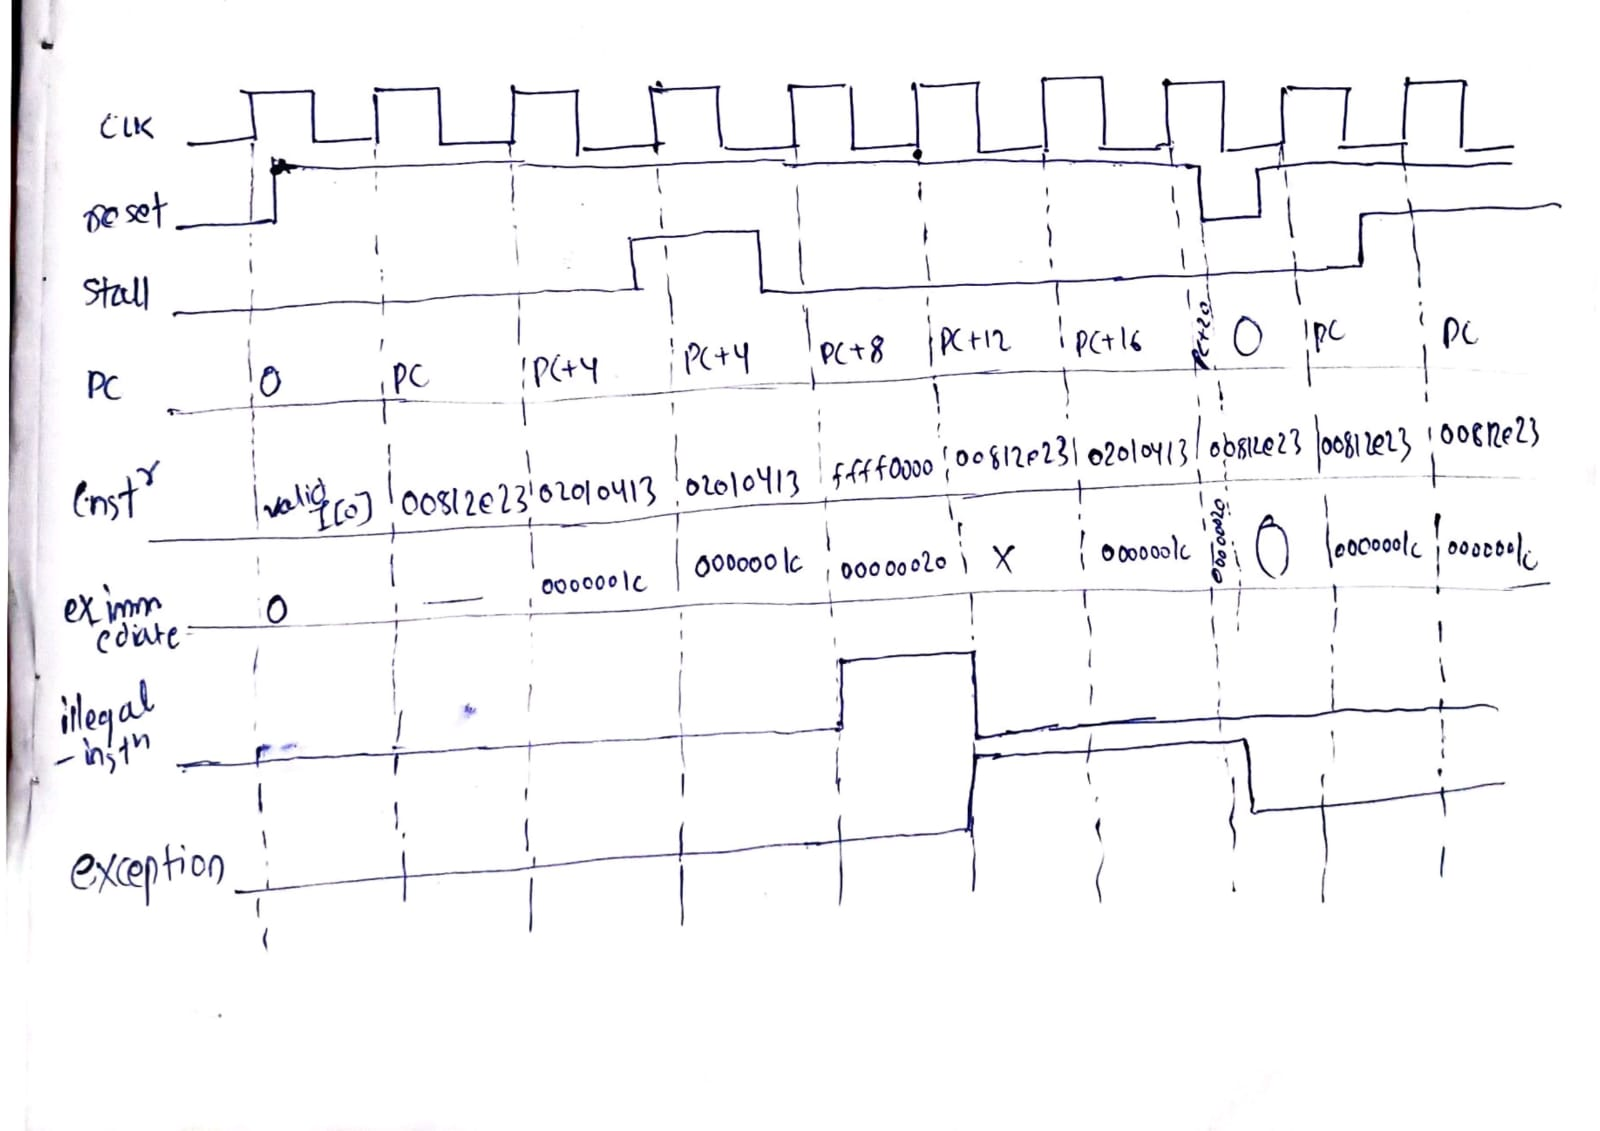 CLK
reset
Stall
PC 0 PC PC+4 PC+4 PC+8 PC+12 PC+16 PC+20 0 PC PC
Instr valid I[0] 00812e23 02010413 02010413 ffff0000 00812e23 02010413 00812e23 00812e23 00812e23
eximm 0 — 0000001c 0000001c 00000020 X 0000001c 00000020 0 0000001c 0000001c
ediate
illegal
-instn
exception